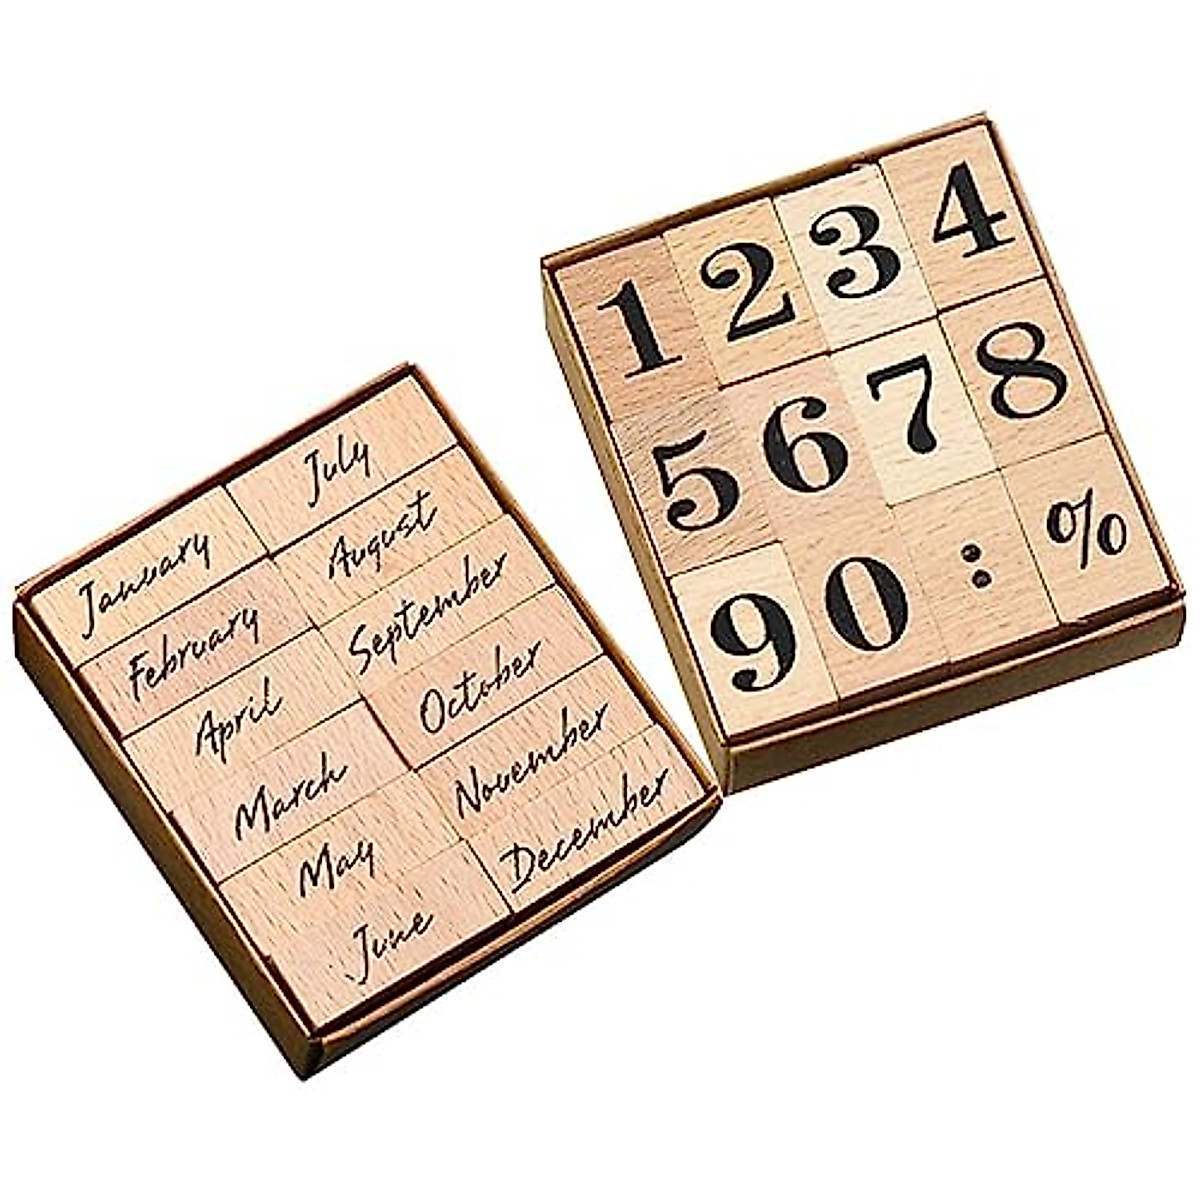 January
February
April
March
May
June
July
August
September
October
November
December
1 2 3 4
5 6 7 8
9 0 : %